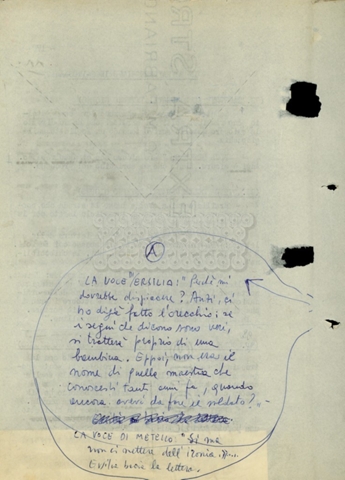 A
LA VOCE D'ERSILIA: "Perché mi
dovrebbe dispiacere? Anzi, ci
ho digià fatto l'orecchio; se
i segni che dicono sono veri,
si tratterà proprio di una
bambina. Eppoi, non era il
nome di quella maestra che
conoscesti tanti anni fa, quando
ancora avevi da fare il soldato? -
LA VOCE DI METELLO: "Sì ma
non ci mettere dell'ironia.
bene la lettera.
FABRIANO